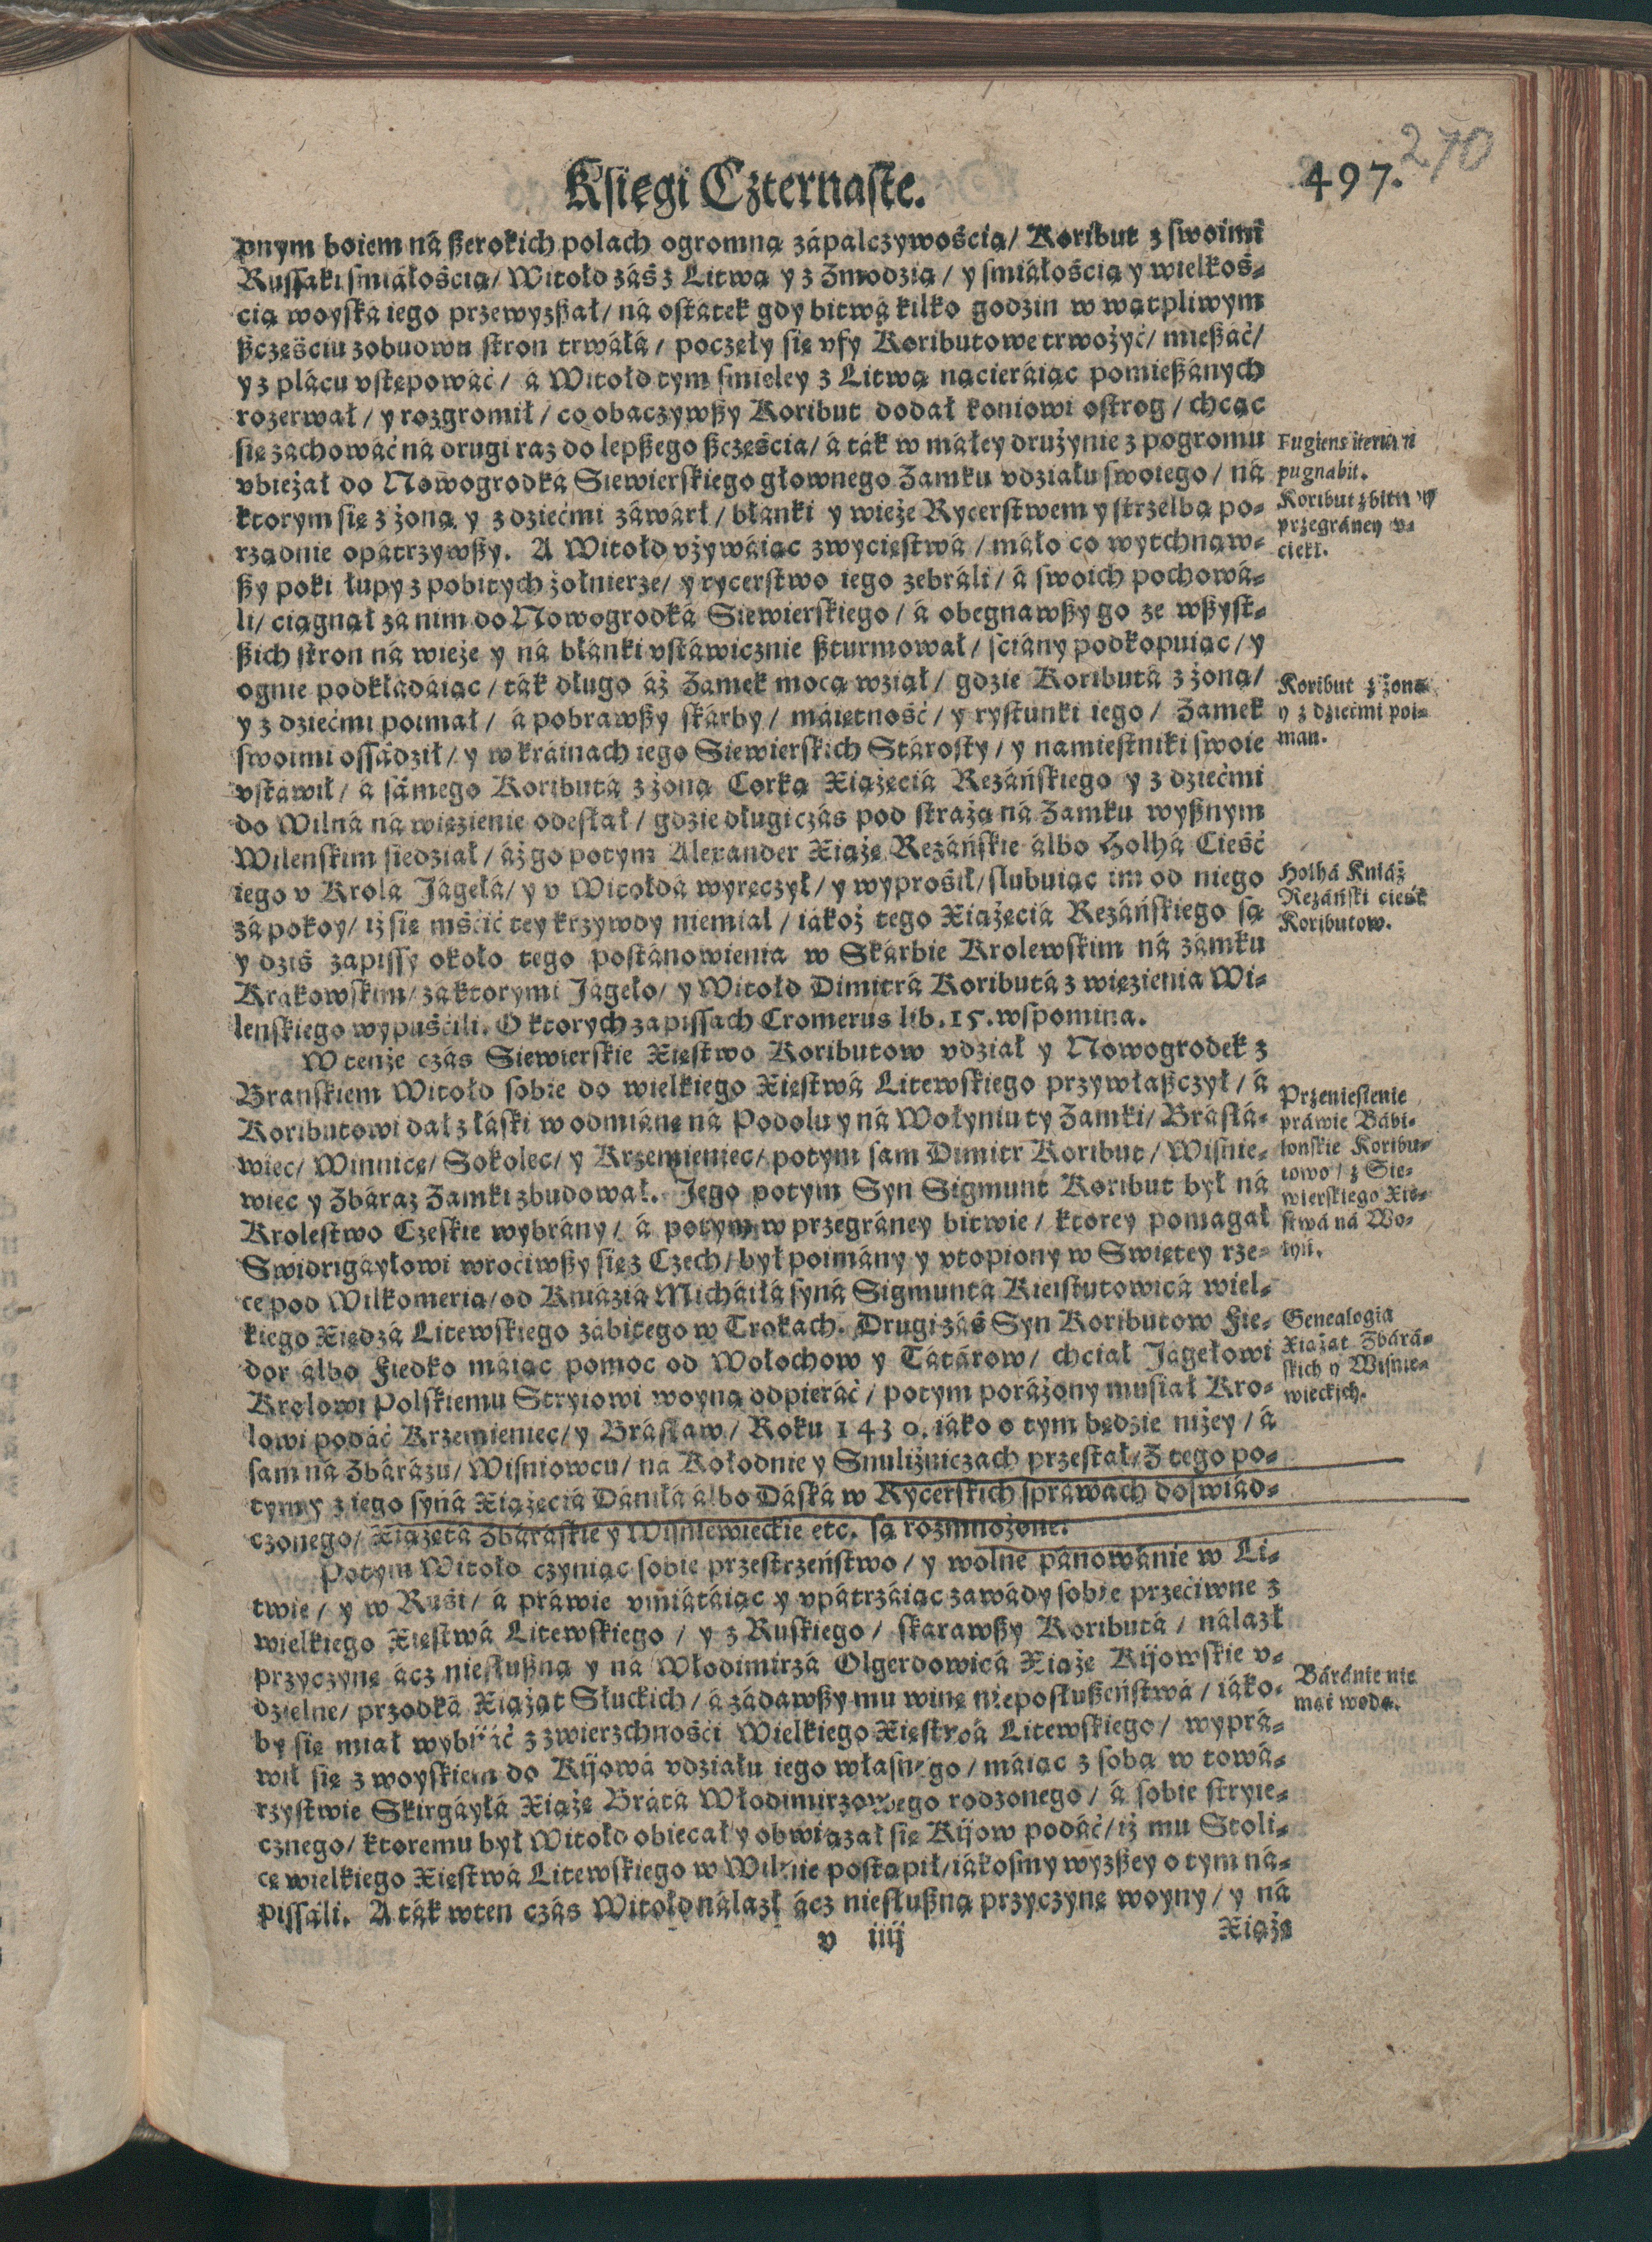 Księgi Cżternaste.
497.
270
pnym boiem ná ßerokich polach ogromną zápalczywośćią/ Koribut z swoimi
Russaki smiáłośćią/ Witołd záś z Litwą y z Zmodzią / y smiáłośćią y wielkoś-
ćią woyská iego przewyzßał/ ná ostátek gdy bitwá kilko godzin w wątpliwym
ßczęśćiu z obudwu stron trwáłá / poczęły się vfy Koributowe trwożyć/ mießáć/
y z plácu vstępowáć/ á Witołd tym smieley z Litwą nácieráiąc pomießánych
rozerwał / y rozgromił / co obaczywßy Koribut dodał koniowi ostrog / chcąc
się záchowáć ná drugi raz do lepßego ßczęścia/ á ták w máłey drużynie z pogromu
vbieżał do Nowogrodká Siewierskiego głownego Zamku vdziału swoiego / ná
ktorym się z żoną y z dziećmi záwárł / błanki y wieże Rycerstwem y strzelbą po-
rządnie opátrzywßy. A Witołd vżywáiąc zwyćięstwá / máło co wytchnąw-
ßy poki łupy z pobitych żołnierze/ y rycerstwo iego zebráli / á swoich pochowá-
li/ ćiągnął zá nim do Nowogrodká Siewierskiego / á obegnawßy go ze wßyst-
ßich stron ná wieże y ná błánki vstáwicznie ßturmował / sćiány podkopuiąc / y
ognie podkłádáiąc / ták długo áż Zamek mocą wziął / gdzie Koributá z żoną/
y z dziećmi poimał / á pobrawßy skárby / máiętność / y rystunki iego / Zamek
swoimi ossádził / y w kráinach iego Siewierskich Stárosty / y namiestniki swoie
vstáwił / á sámego Koributá z żoną Corką Xiążęćiá Rezáńskiego y z dziećmi
do Wilná ná więzienie odesłał / gdzie długi czás pod strażą ná Zamku wyßnym
Wileńskim siedział / áż go potym Alexander Xiążę Rezáńskie álbo Holhá Cieść
iego v Krolá Jágełá/ y v Witołdá wyręczył / y wyprośił/ slubuiąc im od niego
zá pokoy/ iż się mśćić tey krzywdy niemiał / iákoż tego Xiążęćiá Rezáńskiego są
y dziś zapissy około tego postánowienia w Skárbie Krolewskim ná zamku
Krákowskim/ zá ktorymi Jágeło/ y Witołd Dimitrá Koributá z więzienia Wi-
leńskiego wypuśćili. O ktorych zapissach Cromerus lib. 15. wspomina.
W tenże czás Siewierskie Xięstwo Koributow vdział y Nowogrodek z
Branskiem Witołd sobie do wielkiego Xięstwá Litewskiego przywłaßczył / á
Koributowi dał z łáski w odmiánę ná Podolu y ná Wołyniu ty Zamki/ Brásłá-
wiec/ Winnicę/ Sokolec/ y Krzemieniec/ potym sam Dimitr Koribut / Wisnie-
wiec y Zbáraz Zamki zbudował. Jego potym Syn Sigmunt Koribut był ná
Krolestwo Czeskie wybrány / á potym w przegráney bitwie / ktorey pomagał
Swidrigáyłowi wroćiwßy się z Czech / był poimány y vtopiony w Swiętey rze-
ce pod Wilkomerią/ od Kniáziá Micháiłá syná Sigmuntá Kieistutowicá wiel-
kiego Xiędzá Litewskiego zábitego w Trokach. Drugi záś Syn Koributow Fie-
dor álbo Fiedko máiąc pomoc od Wołochow y Tátárow/ chćiał Jágełowi
Krolowi Polskiemu Stryiowi woyną odpieráć / potym poráżony musiał Kro-
lowi podáć Krzemieniec/ y Brásław / Roku 1430. iáko o tym będzie niżey / á
sam ná Zbárázu/ Wisniowcu/ ná Kołodnie y Snuliżniczach przestał/ Z tego po-
tym y z iego syná Xiążęćiá Dániłá álbo Dáská w Rycerskich spráwach doswiád-
czonego/ Xiążętá Zbáráskie y Wisniewieckie etc. są rozmnożone.
Potym Witołd czyniąc sobie przestrzeństwo / y wolne pánowánie w Li-
twie / y w Ruśi / á práwie vmiátáiąc y vpátrzáiąc zawády sobie przećiwne z
wielkiego Xięstwá Litewskiego / y z Ruskiego / skarawßy Koributá / nálazł
przyczynę ácz niesłußną y ná Włodimirzá Olgerdowicá Xiążę Kijowskie v-
dzielne/ przodká Xiążąt Słuckich / á zádawßy mu winę nieposłußeństwá / iáko-
by się miał wybiiáć z zwierzchnośći Wielkiego Xięstwá Litewskiego / wyprá-
wił się z woyskiem do Kijowá vdziału iego własnego / máiąc z sobą w towá-
rzystwie Skirgáyłá Xiążę Brátá Włodimirzowego rodzonego / á sobie stryie-
cznego/ ktoremu był Witołd obiecał y obwiązał się Kijow podáć/ iż mu Stoli-
cę wielkiego Xięstwá Litewskiego w Wilnie postąpił/ iákosmy wyzßey o tym ná-
pissáli. A ták w ten czás Witołd nálazł ácz niesłußną przyczynę woyny / y ná
v iiij
Xiążę
Fugiens iterũ
pugnabit.
Koribut z bitwy
przegráney v-
ćiekł.
Koribut z żoną
y z dziećmi poi-
man.
Holhá Kniáź
Rezáński ćieść
Koributow.
Przeniesienie
práwie Bábi-
lońskie Koribu-
towo / z Sie-
wierskiego Xię-
stwá ná Wo-
łyń.
Genealogia
Xiążąt Zbárá-
skich y Wisnie-
wieckich.
Báránie nie
mąć wody.